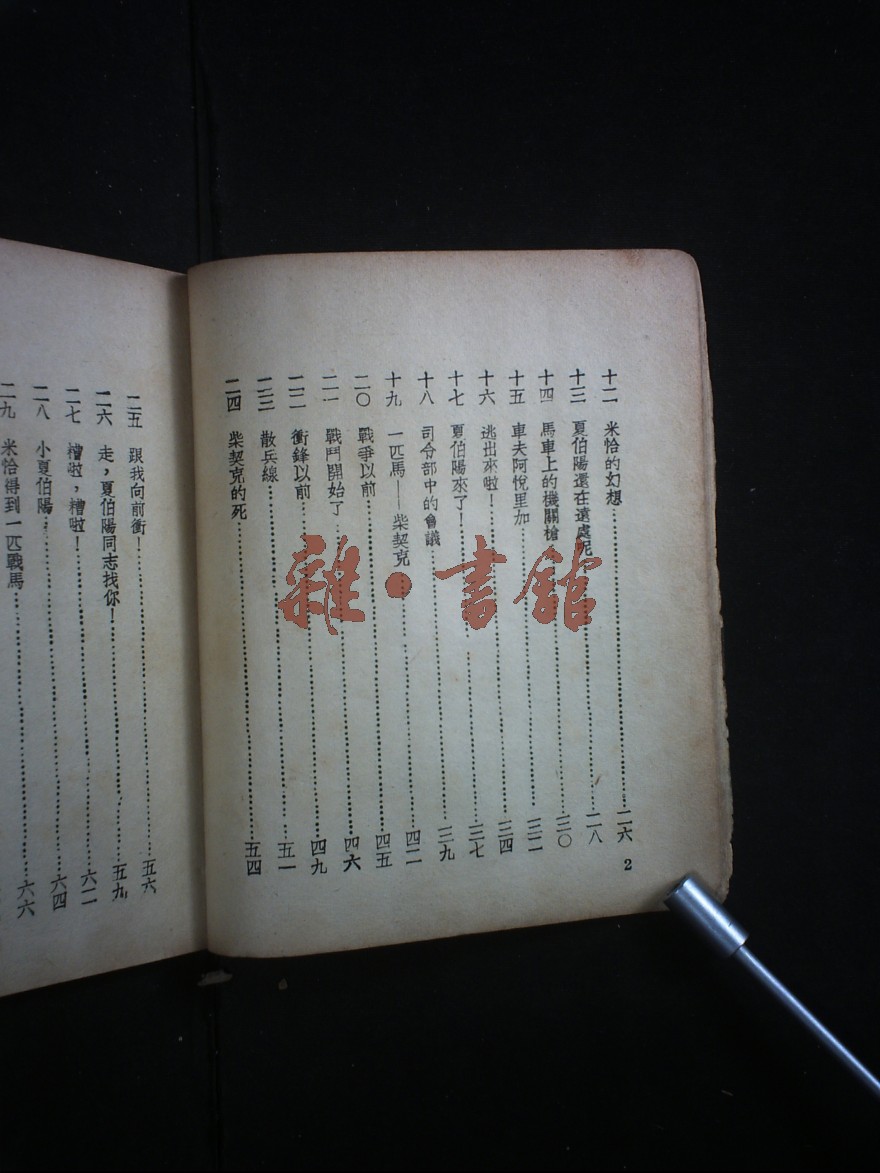 十二 米恰的幻想……二六
十三 夏伯陽還在遠處呢……二八
十四 馬車上的機關槍……三〇
十五 車夫阿悅里加……三二
十六 逃出來啦！……三四
十七 夏伯陽來了！……三七
十八 司令部中的會議……三九
十九 一匹馬——柴契克……四二
二〇 戰爭以前……四五
二一 戰鬥開始了……四六
二二 衝鋒以前……四九
二三 散兵線……五一
二四 柴契克的死……五四
2
二五 跟我向前衝！……五六
二六 走，夏伯陽同志找你！……五九
二七 糟啦，糟啦！……六二
二八 小夏伯陽……六四
二九 米恰得到一匹戰馬……六六
雜·書館